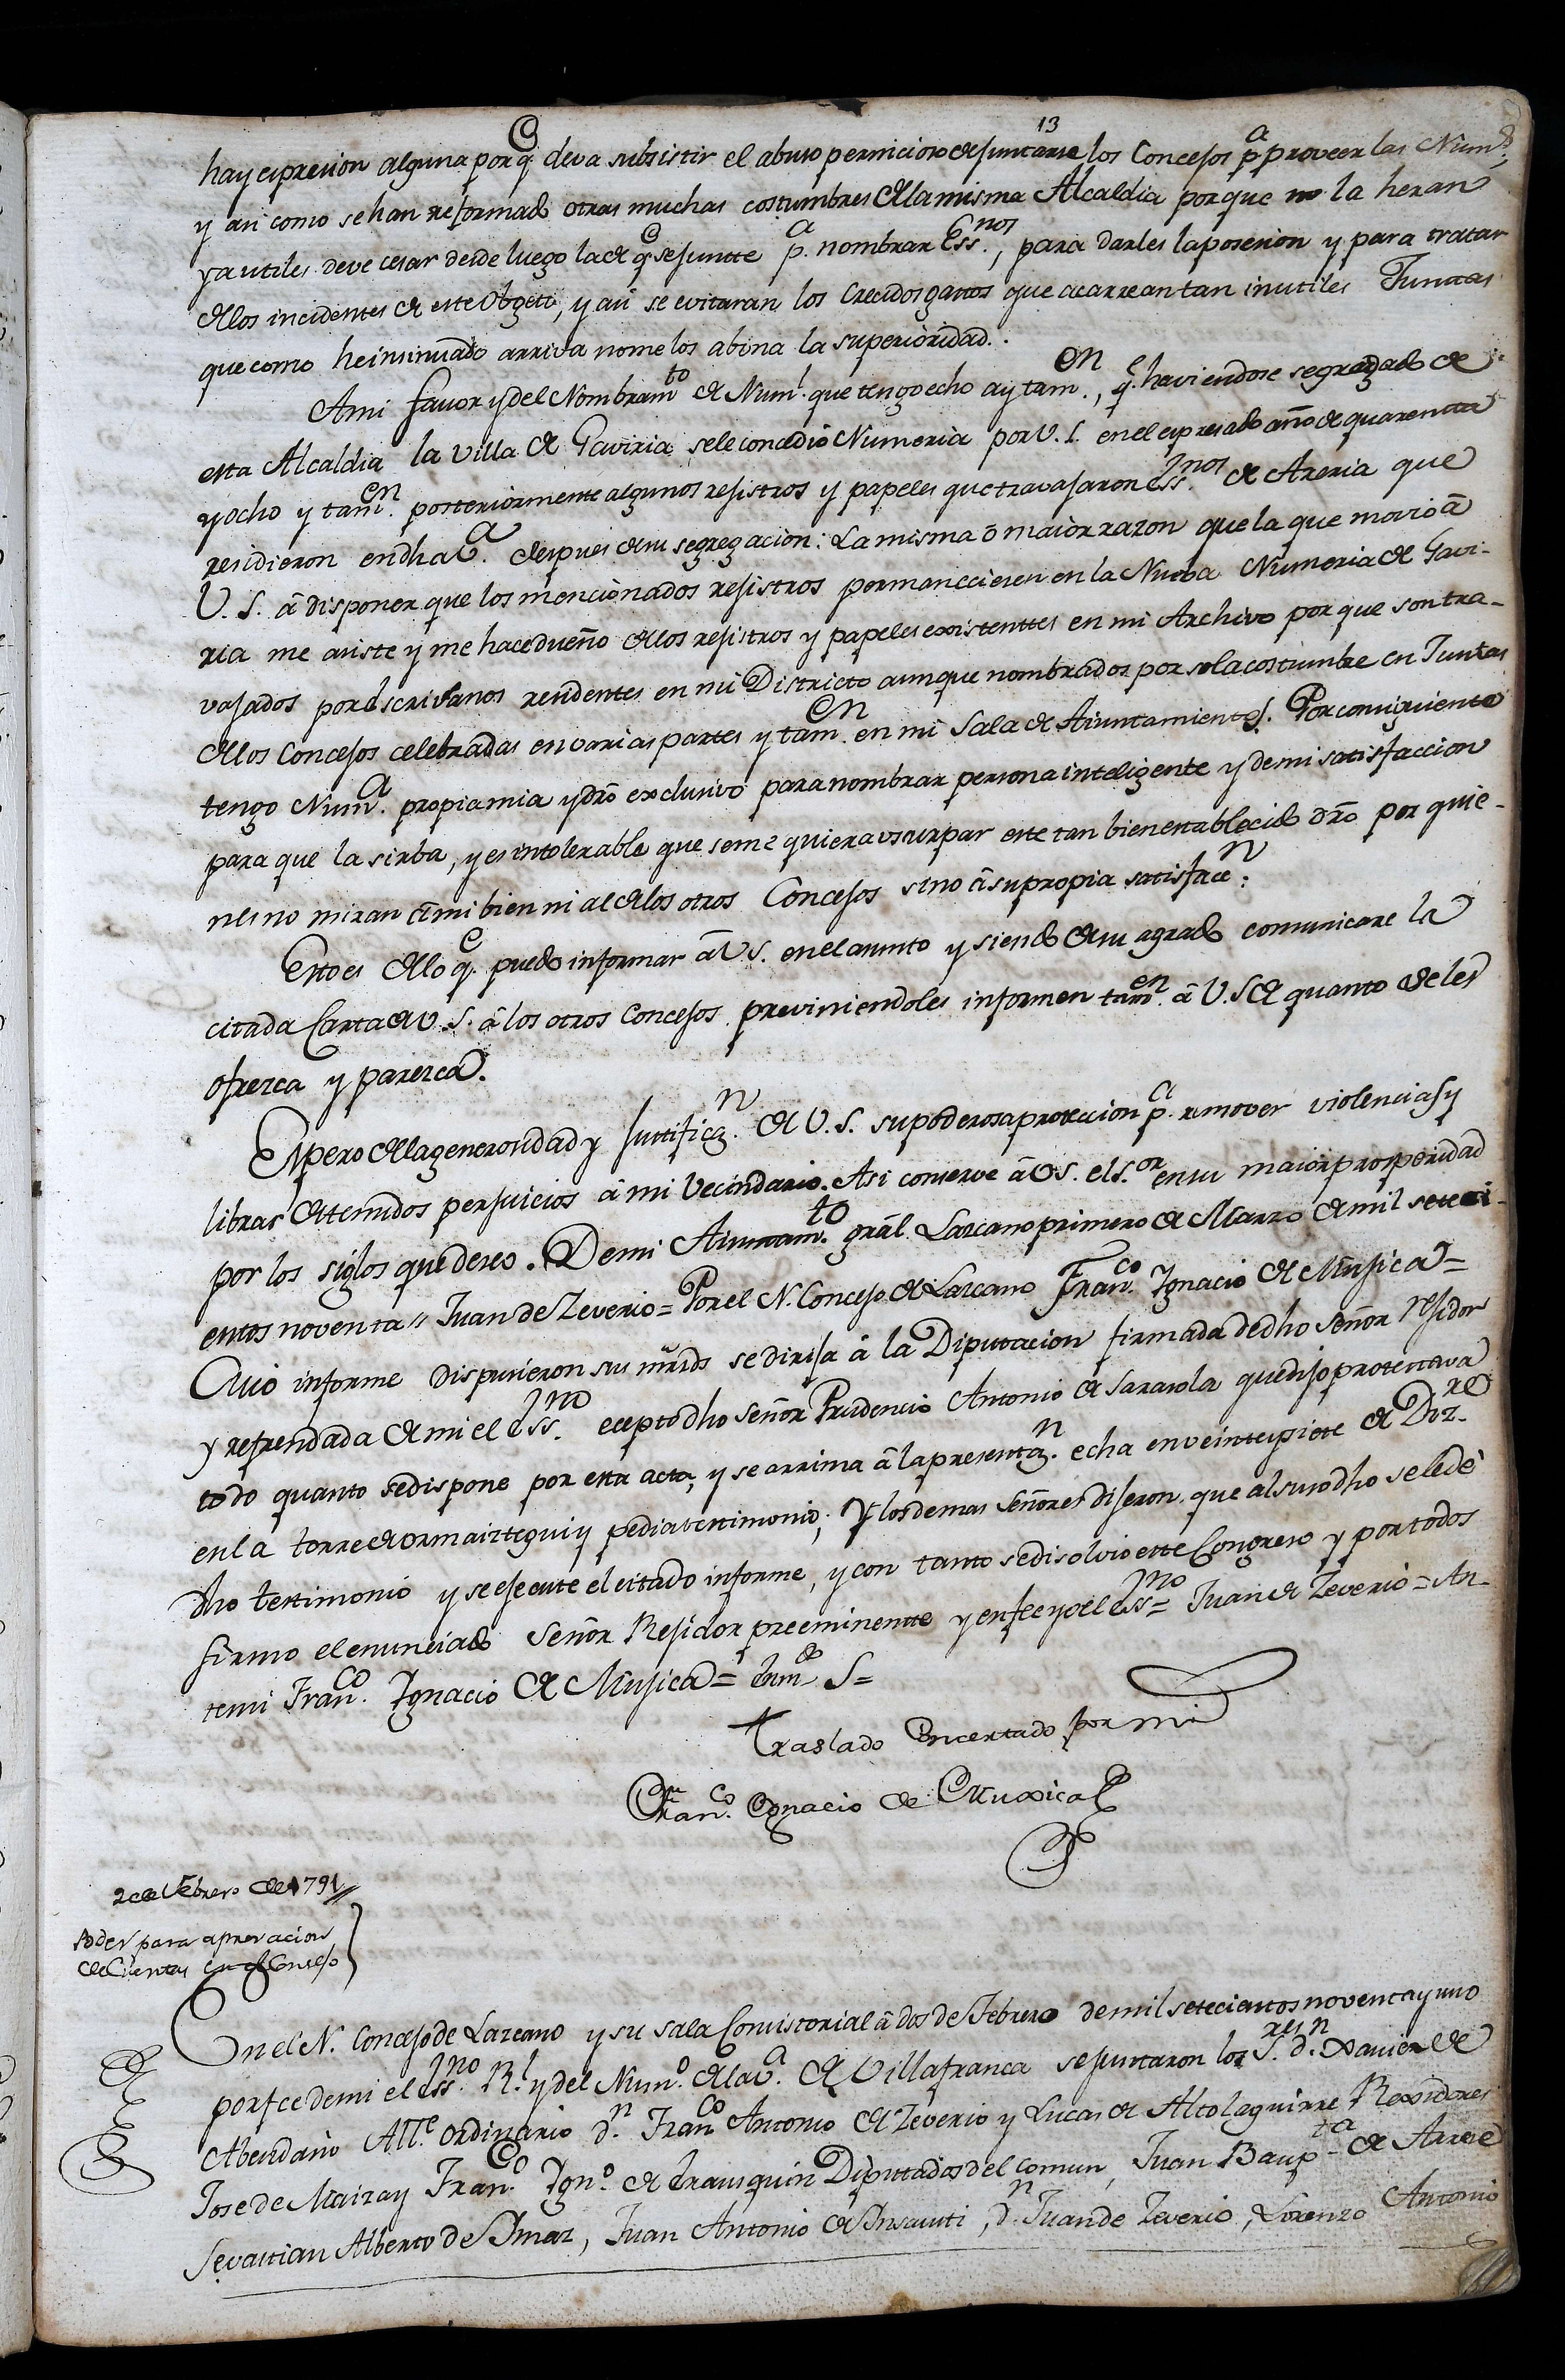 13
hay expresion alguna por q.e deva subsistir el abuso pernicioso de juntarse los Concejos p.a proveer las Num.s,
y asi como se han reformado otras muchas costumbres de la misma Alcaldia por que no la heran
ya utiles deve cesar desde luego la de q.e se juntte p.a nombrar Ess.nos, para darles la posesion y para tratar
de los incidentes de este Obgeto, y asi se evitaran los Crecidos gastos que acarrean tan inutiles Junttas
que como he insinuado arriva no me los abona la superioridad.
A mi favor y del Nombram.to de Num.l que tengo echo ay tam.en, q.e haviendose segregado de
esta Alcaldia la Villa de Gaviria se le concedió Numeria por V.S. en el expresado año de quarentta
y ocho y tam.en posteriormente algunos rejistros y papeles que travajaron Ess.nos de Areria que
residieron en dha V.a despues de su segregacion: La misma ó maior razon que la que movió á
V.S. á disponer que los mencionados rejistros permanecieren en la Nueba Numeria de Gavi-
ria me asiste y me hace dueño de los rejistros y papeles existenttes en mi Archivo por que son tra-
vajados por Escrivanos residentes en mi Districto aunque nombrados por sola costumbre en Juntas
de los Concejos celebradas en varias partes y tam.en en mi Sala de Aiuntamientos. Por consiguiente
tengo Num.a propia mia y dro exclusivo para nombrar persona inteligente y de mi satisfaccion
para que la sirba, y es intolerable que se me quiera usurpar este tan bien establecido dro por quie-
nes no miran á mi bien ni al de los otros Concejos sino á su propia satisfacc.n:
Esto es de lo q.e puedo informar á V.S. en el asunto y siendo de su agrado comunicare la
citada Carta de V.S. á los otros Concejos previniendoles informen tam.en á V.S. de quanto se les
ofrezca y parezca.
Espero de la generosidad y justificaz.n de V.S. su poderosa proteccion p.a remover violencias y
librar de temidos perjuicios á mi Vecindario. Asi conserve á V.S. el S.or en su maior prosperidad
por los siglos que deseo. De mi Aiuntam.to gral. Lazcano primero de Marzo de mil seteci-
entos noventa" Juan de Zeverio = Por el N. Concejo de Lazcano Fran.co Ignacio de Mujica =
Cuio informe dispusieron sus mrds se dirija á la Diputacion firmada de dho Señor Rejidor
y refrendada de mi el Ess.no eceptó dho Señor Prudencio Antonio de Sarasola que dijo protestava
todo quanto se dispone por esta acta, y se arrima á la presentaz.n echa en veinte y siete de Diz.re
en la torre de Ormaiztegui y pedia testimonio; Y los demas Señores dijeron que al susodho se le dé
dho testimonio y se ejecute el citado informe, y con tanto se disolvió este Congreso y por todos
firmó el enunciado Señor Rejidor preeminentte y en fee yo el Ess.no = Juan de Zeverio = An-
temi Fran.co Ignacio de Mujica = Enm.do S =
Traslado Concertado por mi
Fran.co Ignacio de Muxica
2 de Febrero de 1791
Poder para aprovacion
de Cuentas en el Consejo
En el N. Concejo de Lazcano y su sala Consistorial á dos de Febrero de mil setecientos noventa y uno
por fee de mi el Ess.no R.l y del Num.o de la V.a de Villafranca se juntaron los S.res d.n Xavier de
Abendaño All.e ordinario d.n Fran.co Antonio de Zeverio y Lucas de Altolaguirre Rexidores
Jose de Maiz y Fran.co Ign.o de Irausquin Diputados del comun, Juan Baup.ta de Arrese
Sevastian Alberto de Imaz, Juan Antonio de Insausti, d.n Juan de Zeverio, Lorenzo Antonio